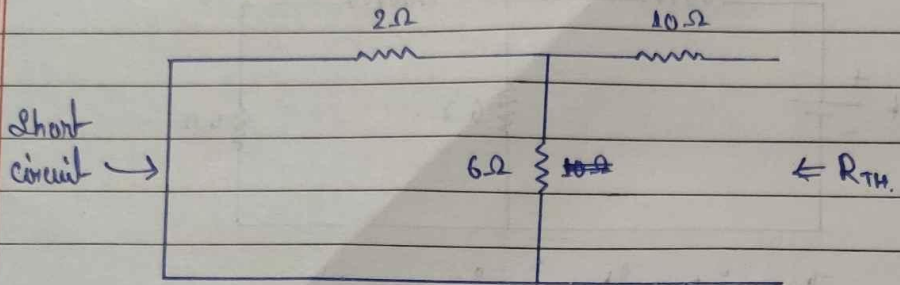 2Ω 10Ω
Short
circuit →
6Ω 10Ω
⇐ RTH.